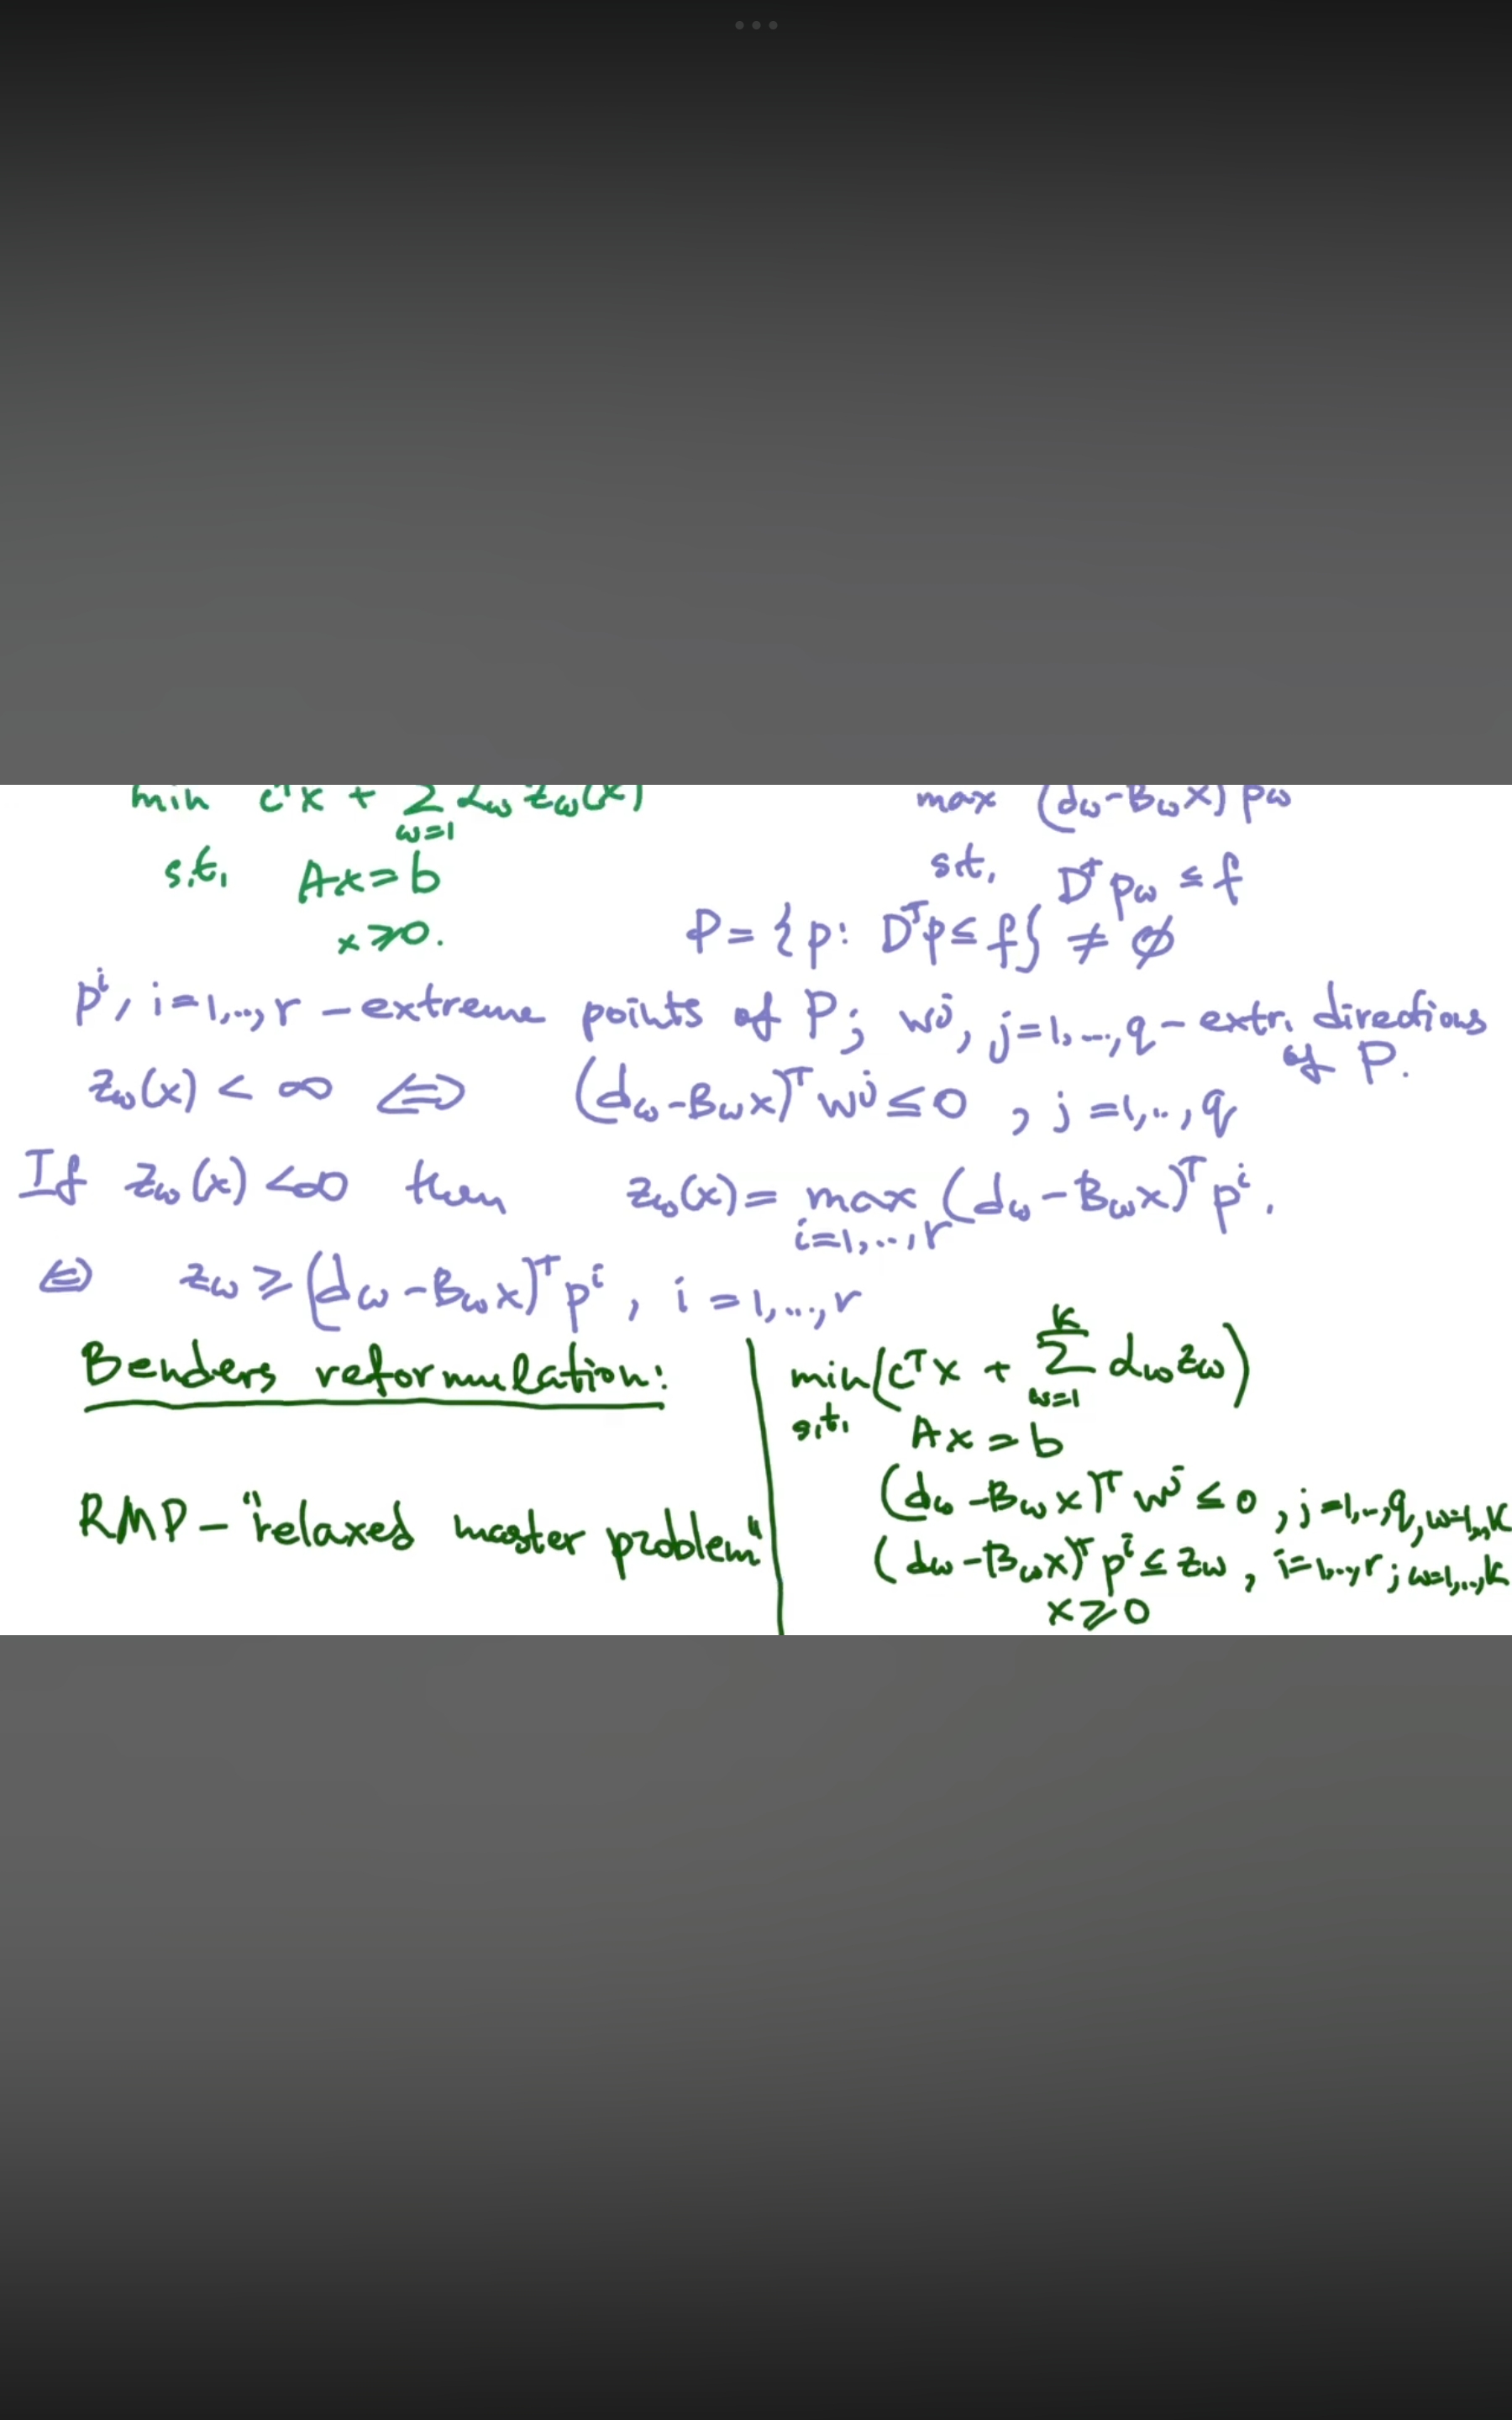 min cᵀx + Σ_{ω=1} α_ω z_ω(x)
s.t. Ax = b
x ≥ 0.
max (d_ω - B_ω x)ᵀ p_ω
s.t. Dᵀ p_ω ≤ f
P = {p: Dᵀp ≤ f} ≠ ∅
pⁱ, i=1,...,r - extreme points of P; wʲ, j=1,...,q - extr. directions of P.
z_ω(x) < ∞ ⇔ (d_ω - B_ω x)ᵀ wʲ ≤ 0, j=1,...,q
If z_ω(x) < ∞ then z_ω(x) = max_{i=1,...,r} (d_ω - B_ω x)ᵀ pⁱ.
⇔ z_ω ≥ (d_ω - B_ω x)ᵀ pⁱ, i=1,...,r
Benders reformulation:
RMP - "relaxed master problem"
min (cᵀx + Σ_{ω=1}^{K} α_ω z_ω)
s.t. Ax = b
(d_ω - B_ω x)ᵀ wʲ ≤ 0, j=1,..,q, ω=1,..,K
(d_ω - B_ω x)ᵀ pⁱ ≤ z_ω, i=1,...,r; ω=1,...,K
x ≥ 0